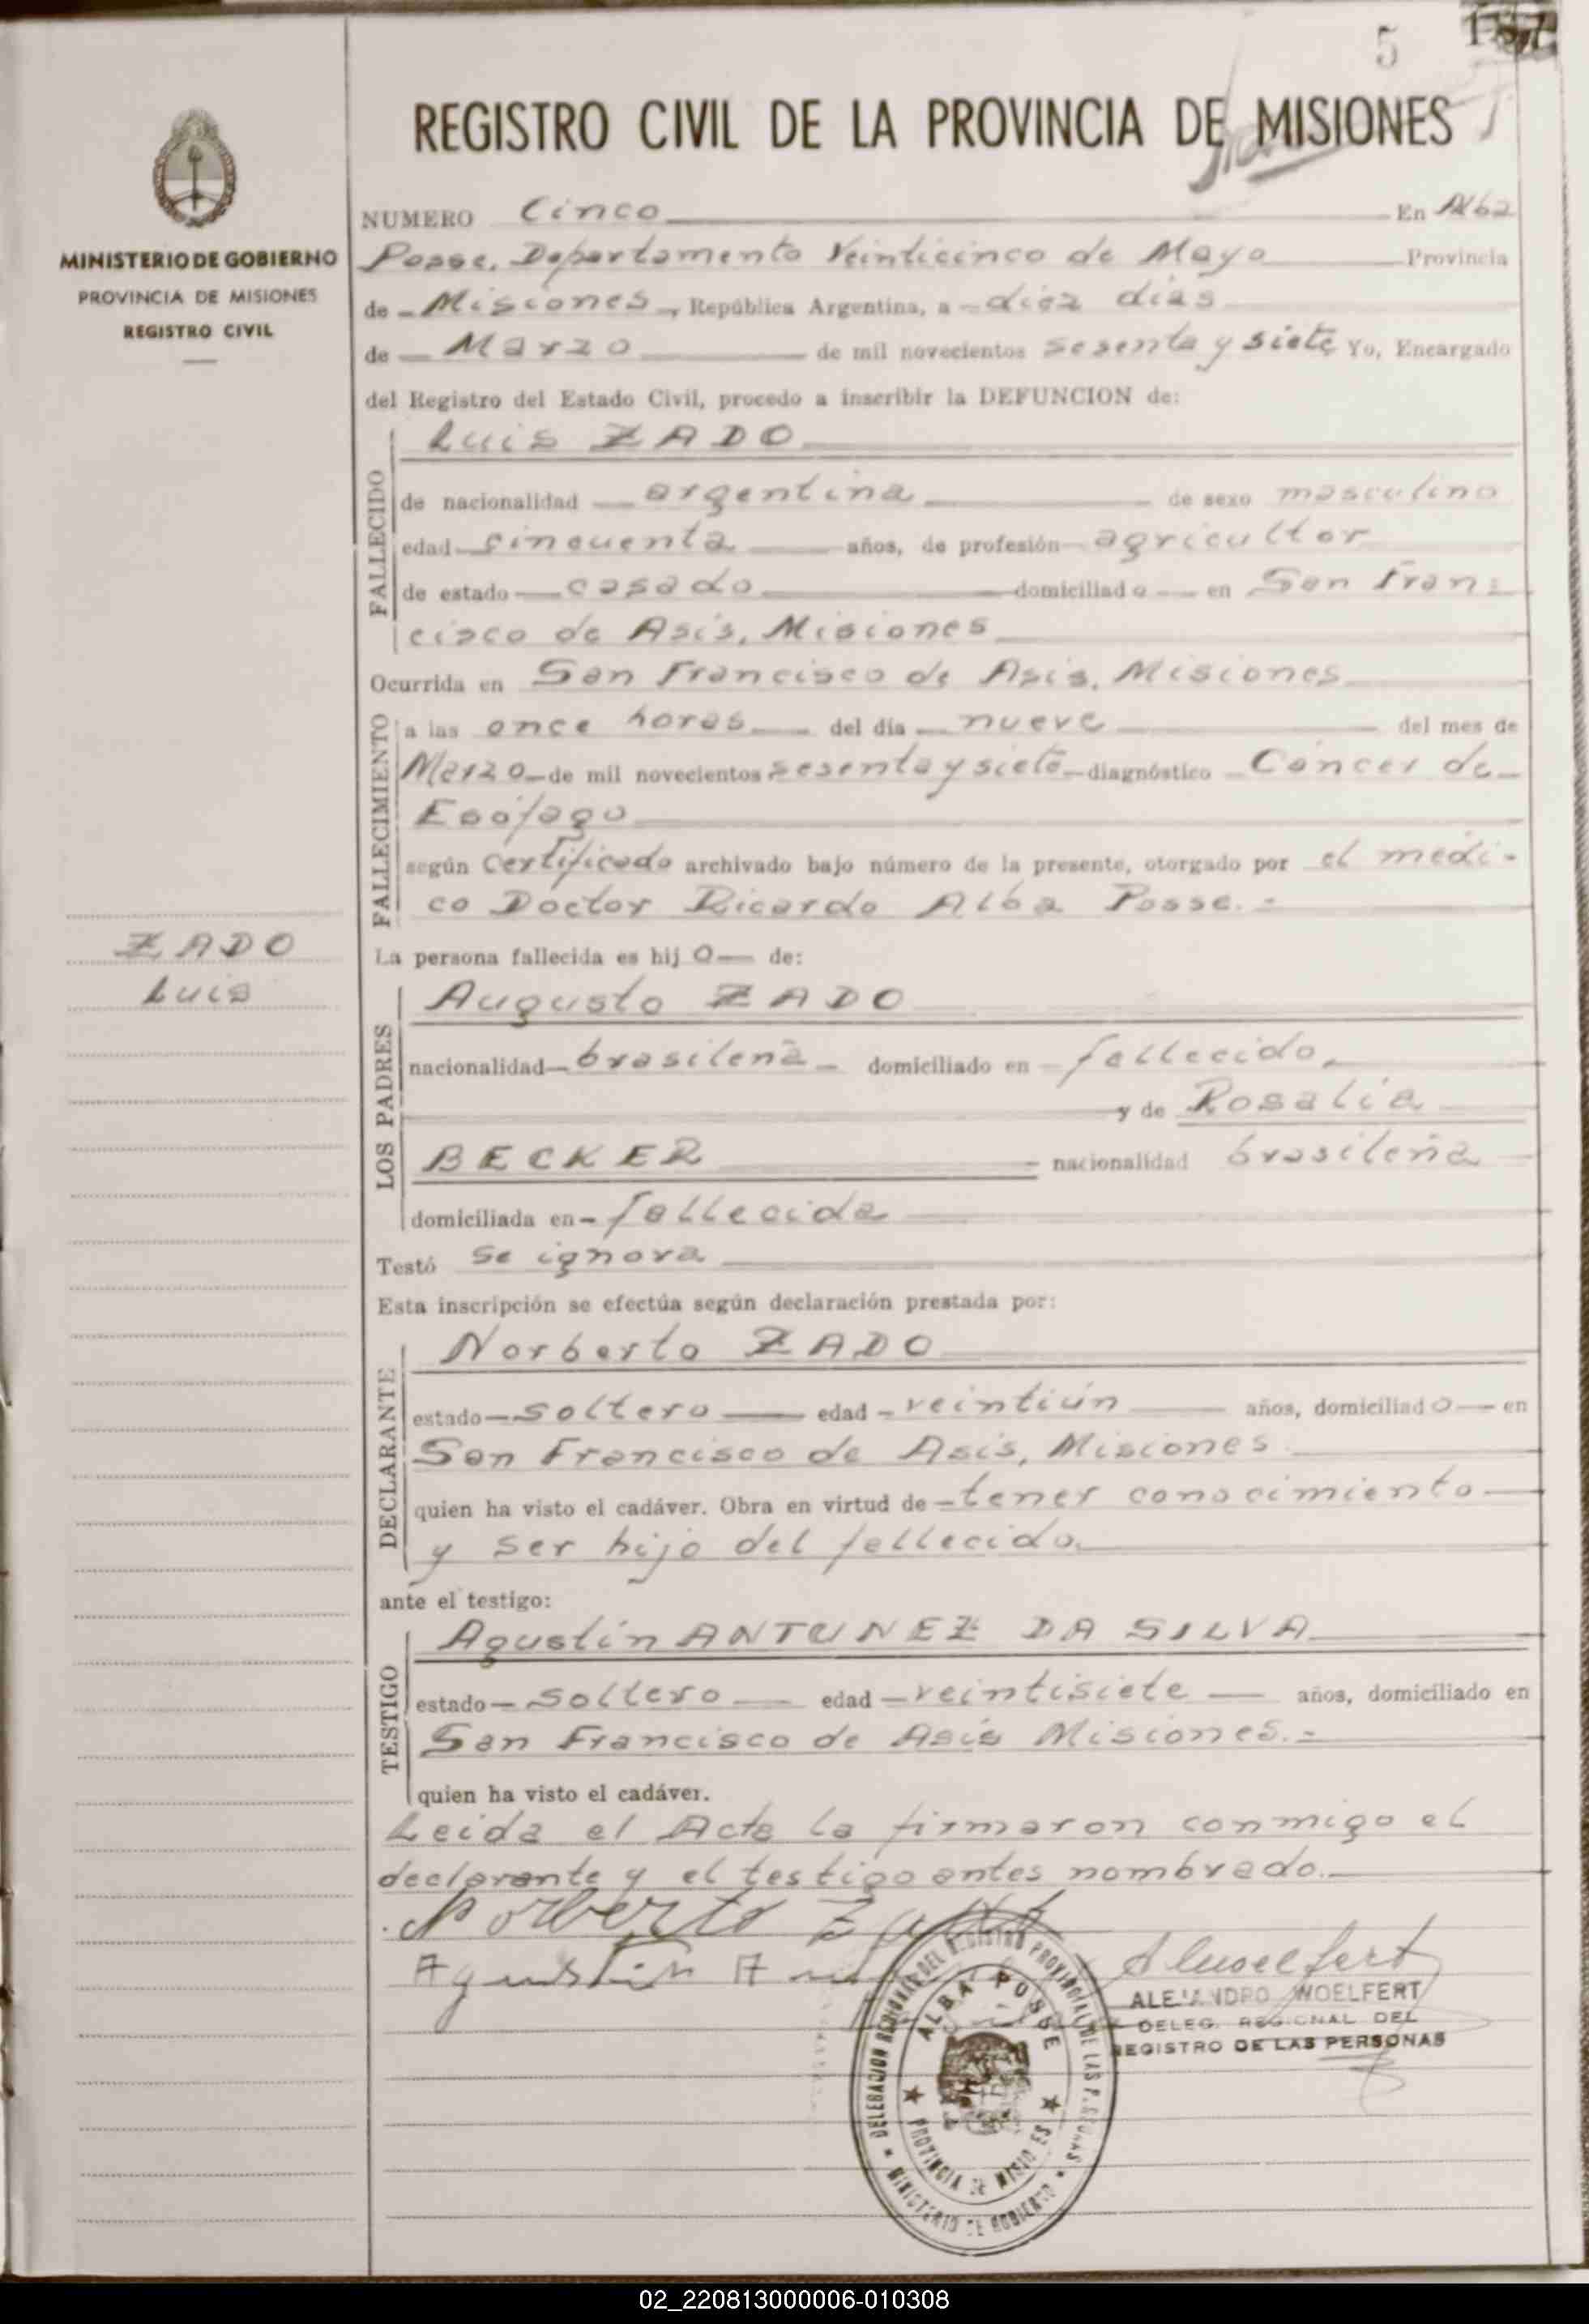 5
REGISTRO CIVIL DE LA PROVINCIA DE MISIONES
MINISTERIO DE GOBIERNO
PROVINCIA DE MISIONES
REGISTRO CIVIL
NUMERO Cinco En Alba
Posse, Departamento Veinticinco de Mayo Provincia
de Misiones, República Argentina, a diez dias
de Marzo de mil novecientos sesenta y siete Yo, Encargado
del Registro del Estado Civil, procedo a inscribir la DEFUNCION de:
FALLECIDO
Luis ZADO
de nacionalidad argentina de sexo masculino
edad cincuenta años, de profesión agricultor
de estado casado domiciliado en San Fran=
cisco de Asis, Misiones
Ocurrida en San Francisco de Asis, Misiones
FALLECIMIENTO
a las once horas del día nueve del mes de
Marzo de mil novecientos sesenta y siete diagnóstico Cáncer de
Esófago
según Certificado archivado bajo número de la presente, otorgado por el medi-
co Doctor Ricardo Alba Posse.-
ZADO
Luis
La persona fallecida es hijo de:
LOS PADRES
Augusto ZADO
nacionalidad brasileña domiciliado en fallecido,
y de Rosalia
BECKER nacionalidad brasileña
domiciliada en fallecida
Testó se ignora
Esta inscripción se efectúa según declaración prestada por:
DECLARANTE
Norberto ZADO
estado soltero edad veintiún años, domiciliado en
San Francisco de Asis, Misiones
quien ha visto el cadáver. Obra en virtud de tener conocimiento
y ser hijo del fallecido.
ante el testigo:
TESTIGO
Agustín ANTUNEZ DA SILVA
estado soltero edad veintisiete años, domiciliado en
San Francisco de Asis Misiones.-
quien ha visto el cadáver.
Leida el Acta la firmaron conmigo el
declarante y el testigo antes nombrado.
Norberto Zado
Agustin
ALEJANDRO WOELFERT
DELEG. REGIONAL DEL
REGISTRO DE LAS PERSONAS
DELEGACION REGIONAL DEL REGISTRO PROVINCIAL DE LAS PERSONAS
ALBA POSSE
PROVINCIA DE MISIONES
MINISTERIO DE GOBIERNO
02_220813000006-010308